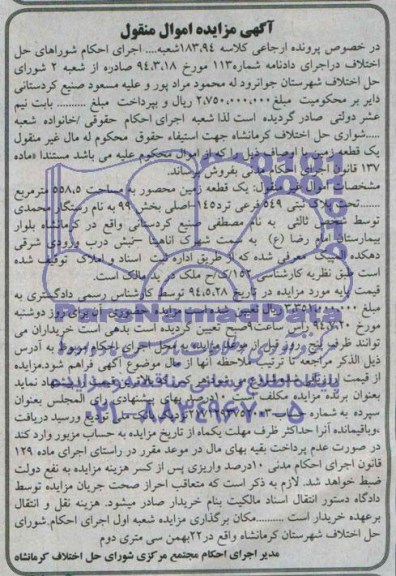 آگهی مزایده اموال منقول
در خصوص پرونده ارجاعی کلاسه ۱۸۳،۹۴شعبه.... اجرای احکام شوراهای حل
اختلاف دراجرای دادنامه شماره۱۱۳ مورخ ۹۴،۳،۱۸ صادره از شعبه ۲ شورای
حل اختلاف شهرستان جوانرود له محمود مراد پور و علیه مسعود صنیع کردستانی
دایر بر محکومیت مبلغ۲،۷۵۰،۰۰۰،۰۰۰ ریال و بپرداخت مبلغ .......... بابت نیم
عشر دولتی صادر گردیده است لذا شعبه اجرای احکام حقوقی /خانواده شعبه
.....شواری حل اختلاف کرمانشاه جهت استیفاء حقوق محکوم له مال غیر منقول
یک قطعه زمین با اوصاف ذیل را که از اموال محکوم علیه می باشد مستندا «ماده
۱۳۷ قانون اجرای احکام مدنی بفروش
مشخصات اموال غیر منقول: یک قطعه زمین محصور به مساحت ۵۵۸،۵ مترمربع
.......تحت پلاک ثبتی ۵۴۹ فرعی ۱۴۵-اصلی بخش ۹۹ به نام رستگار محمدی
توسط شخص ثالثی به نام مصطفی صنیع کردستانی واقع در کرمانشاه بلوار
بیمارستان امام رضا (ع) به سمت شهرک اناهیتا -نبش درب ورودی شرقی
دهکده المپیک معرفی شده که از طریق اداره ثبت اسناد و املاک توقیف شده
است طبق نظریه کارشناسی ۱۵۲/ک/ح ملک در ید مالک است.
قیمت پایه مورد مزایده در تاریخ ۹۴،۵،۲۸ توسط کارشناس رسمی دادگستری به
مبلغ ریال تعیین شده است مزایده حضوری آن برای روز دوشنبه
مورخ ۹۴،۷،۲۰ راس ساعت۹صبح تعیین گردیده است بدهی است خریداران می
توانند ظرف پنج روز قبل از موعد مزایده به محل اجرای احکام مربوط به آدرس
ذیل الذکر مراجعه تا ترتیب ملاحظه آنها از مال موضوع آگهی فراهم شود.مزایده
از قیمت ارزیابی شده شروع و شخصی که بالاترین قیمت را پیشنهاد نماید
بعنوان برنده مزایده مکلف است ۱۰درصد بهای پیشنهادی رای المجلس بعنوان
سپرده به شماره حساب نزدبانک ملی تودیع ورسید دریافت
،وباقیمانده آنرا حداکثر ظرف مهلت یکماه از تاریخ مزایده به حساب مزبور وارد کند
در صورت عدم پرداخت بقیه بهای مال در موعد مقرر در راستای اجرای ماده ۱۲۹
قانون اجرای احکام مدنی ۱۰درصد واریزی پس از کسر هزینه مزایده به نفع دولت
ضبط خواهد شد. لازم به ذکر است که متعاقب احراز صحت جریان مزایده توسط
دادگاه دستور انتقال اسناد مالکیت بنام خریدار صادر میشود. هزینه نقل و انتقال
برعهده خریدار است ..........مکان برگذاری مزایده شعبه اول اجرای احکام.شورای
حل اختلاف شهرستان کرمانشاه واقع در۲۲بهمن سی متری دوم
مدیر اجرای احکام مجتمع مرکزی شورای حل اختلاف کرمانشاه
ParsNamadData
۰۲۱-۸۸۳۴۹۶۷۰-۵